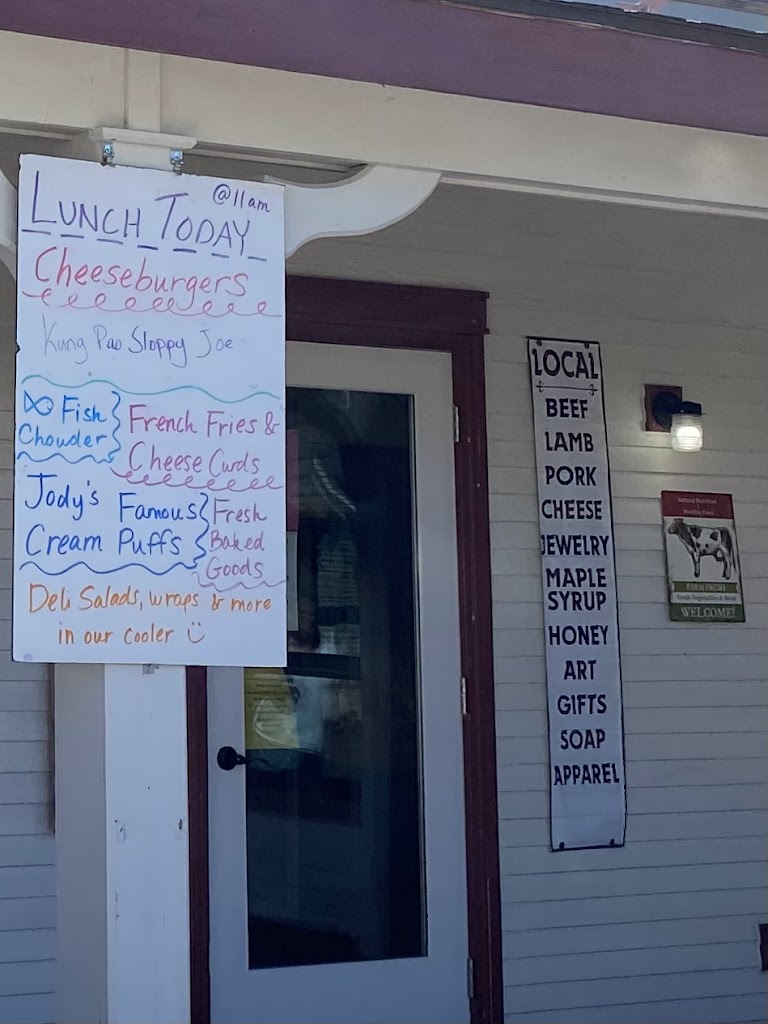 @11am
LUNCH TODAY
Cheeseburgers
Kung Pao Sloppy Joe
Fish
Chowder
French Fries &
Cheese Curds
Jody's Famous
Cream Puffs
Fresh
Baked
Goods
Deli Salads, wraps & more
in our cooler
LOCAL
BEEF
LAMB
PORK
CHEESE
JEWELRY
MAPLE
SYRUP
HONEY
ART
GIFTS
SOAP
APPAREL
Natural Nutrition
Healthy Food
FARM FRESH
Fresh Vegetables & Meat
WELCOME!